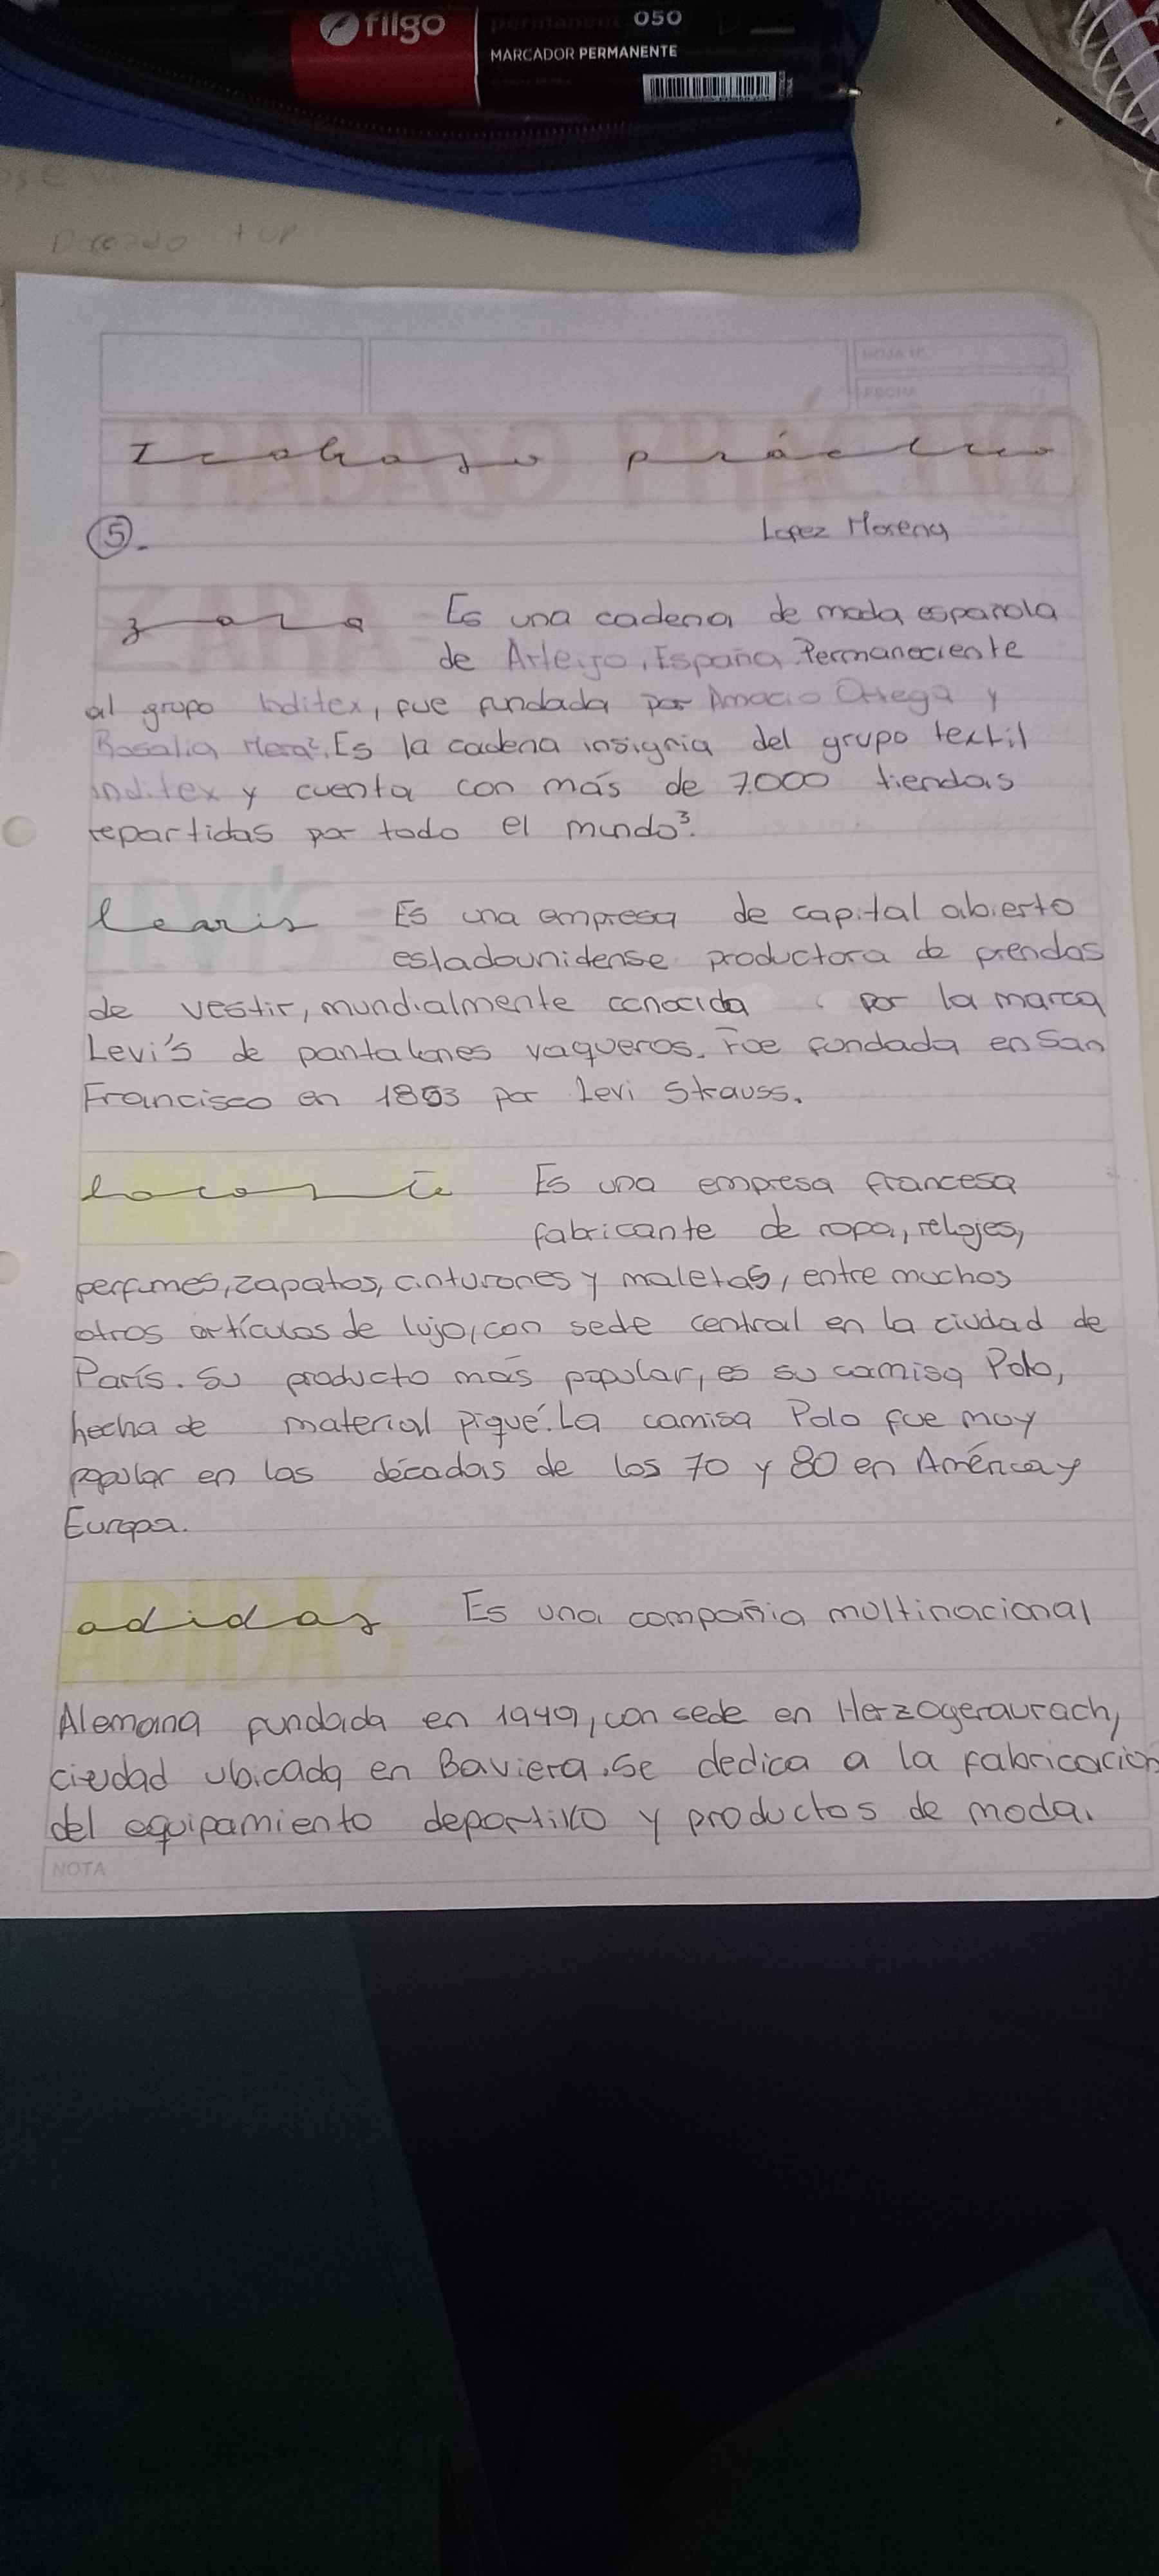 filgo
permanent 050
MARCADOR PERMANENTE
HOJA Nº
FECHA
Trabajo práctico
5. Lopez Morena
zara Es una cadena de moda española
de Arteijo, España. Permaneciente
al grupo Inditex, fue fundada por Amacio Ortega y
Rosalia Mera². Es la cadena insignia del grupo textil
inditex y cuenta con más de 7.000 tiendas
repartidas por todo el mundo³.
Es una empresa de capital abierto
estadounidense productora de prendas
de vestir, mundialmente conocida por la marca
Levi's de pantalones vaqueros. Fue fundada en San
Francisco en 1853 por Levi Strauss.
Es una empresa francesa
fabricante de ropa, relojes,
perfumes, zapatos, cinturones y maletas, entre muchos
otros artículos de lujo, con sede central en la ciudad de
París. Su producto más popular, es su camisa Polo,
hecha de material piqué. La camisa Polo fue muy
popular en las décadas de los 70 y 80 en América y
Europa.
adidas Es una compañia multinacional
Alemana fundada en 1949, con sede en Herzogeraurach,
ciudad ubicada en Baviera. Se dedica a la fabricación
del equipamiento deportivo y productos de moda.
NOTA